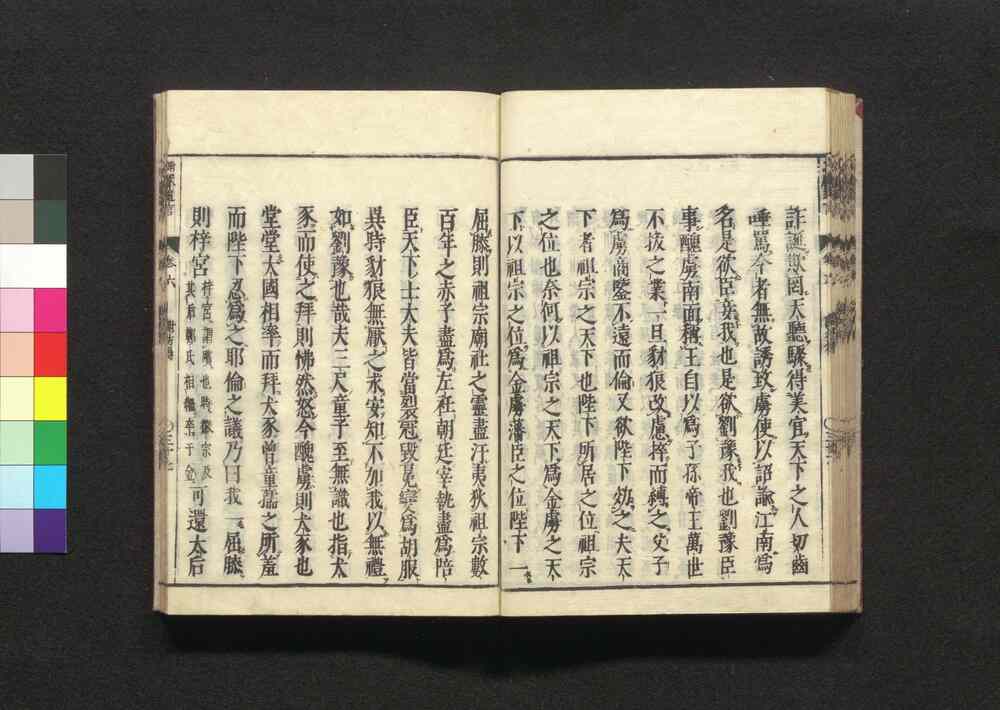 詐誕欺罔天聽驟得美官天下之人切齒
唾罵今者無故誘致虜使以詔諭江南爲
名是欲臣妾我也是欲劉豫我也劉豫臣
事醜虜南面稱王自以爲子孫帝王萬世
不拔之業一旦豺狼改慮捽而縛之父子
爲虜商鑒不遠而倫又欲陛下効之夫天
下者祖宗之天下也陛下所居之位祖宗
之位也奈何以祖宗之天下爲金虜之天
下以祖宗之位爲金虜藩臣之位陛下一
屈膝則祖宗廟社之靈盡汙夷狄祖宗數
百年之赤子盡爲左衽朝廷宰執盡爲陪
臣天下士大夫皆當裂冠毀冕變爲胡服
異時豺狼無厭之求安知不加我以無禮
如劉豫也哉夫三尺童子至無識也指犬
豕而使之拜則怫然怒今醜虜則犬豕也
堂堂大國相率而拜犬豕曾童孺之所羞
而陛下忍爲之耶倫之議乃曰我一屈膝
則梓宮
梓宮謂殯也時徽宗及
其后鄭氏相繼棄于金
可還太后
卷六
三十七